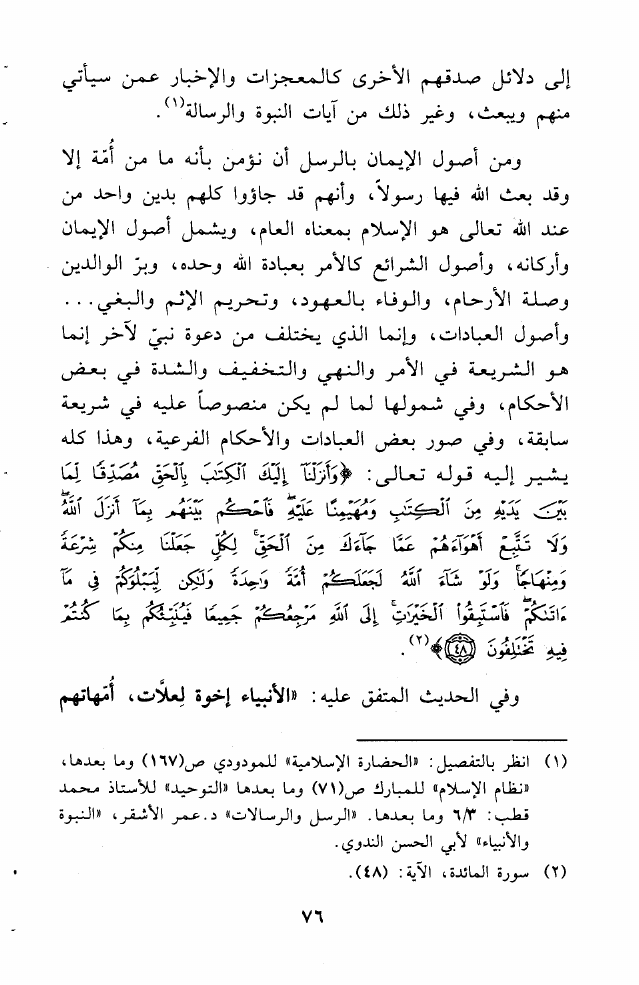 إلى دلائل صدقهم الأخرى كالمعجزات والإخبار عمن سيأتي
منهم ويبعث، وغير ذلك من آيات النبوة والرسالة(١).
ومن أصول الإيمان بالرسل أن نؤمن بأنه ما من أُمّة إلا
وقد بعث الله فيها رسولاً، وأنهم قد جاؤوا كلهم بدين واحد من
عند الله تعالى هو الإسلام بمعناه العام، ويشمل أصول الإيمان
وأركانه، وأصول الشرائع كالأمر بعبادة الله وحده، وبرّ الوالدين
وصلة الأرحام، والوفاء بالعهود، وتحريم الإثم والبغي...
وأصول العبادات، وإنما الذي يختلف من دعوة نبيّ لآخر إنما
هو الشريعة في الأمر والنهي والتخفيف والشدة في بعض
الأحكام، وفي شمولها لما لم يكن منصوصاً عليه في شريعة
سابقة، وفي صور بعض العبادات والأحكام الفرعية، وهذا كله
يشير إليه قوله تعالى: ﴿وَأَنزَلْنَآ إِلَيْكَ ٱلْكِتَٰبَ بِٱلْحَقِّ مُصَدِّقًا لِّمَا
بَيْنَ يَدَيْهِ مِنَ ٱلْكِتَٰبِ وَمُهَيْمِنًا عَلَيْهِ ۖ فَٱحْكُم بَيْنَهُم بِمَآ أَنزَلَ ٱللَّهُ ۖ
وَلَا تَتَّبِعْ أَهْوَآءَهُمْ عَمَّا جَآءَكَ مِنَ ٱلْحَقِّ ۚ لِكُلٍّ جَعَلْنَا مِنكُمْ شِرْعَةً
وَمِنْهَاجًا ۚ وَلَوْ شَآءَ ٱللَّهُ لَجَعَلَكُمْ أُمَّةً وَٰحِدَةً وَلَٰكِن لِّيَبْلُوَكُمْ فِى مَآ
ءَاتَىٰكُمْ ۖ فَٱسْتَبِقُوا۟ ٱلْخَيْرَٰتِ ۚ إِلَى ٱللَّهِ مَرْجِعُكُمْ جَمِيعًا فَيُنَبِّئُكُم بِمَا كُنتُمْ
فِيهِ تَخْتَلِفُونَ ٤٨﴾(٢).
وفي الحديث المتفق عليه: «الأنبياء إخوة لِعلَّات، أُمّهاتهم
(١) انظر بالتفصيل: «الحضارة الإسلامية» للمودودي ص(١٦٧) وما بعدها،
«نظام الإسلام» للمبارك ص(٧١) وما بعدها «التوحيد» للأستاذ محمد
قطب: ٦/٣ وما بعدها. «الرسل والرسالات» د.عمر الأشقر، «النبوة
والأنبياء» لأبي الحسن الندوي.
(٢) سورة المائدة، الآية: (٤٨).
٧٦